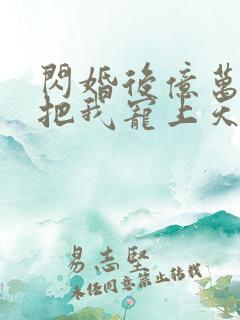 閃婚後億萬
把我寵上天
易志堅
未經同意禁止转载